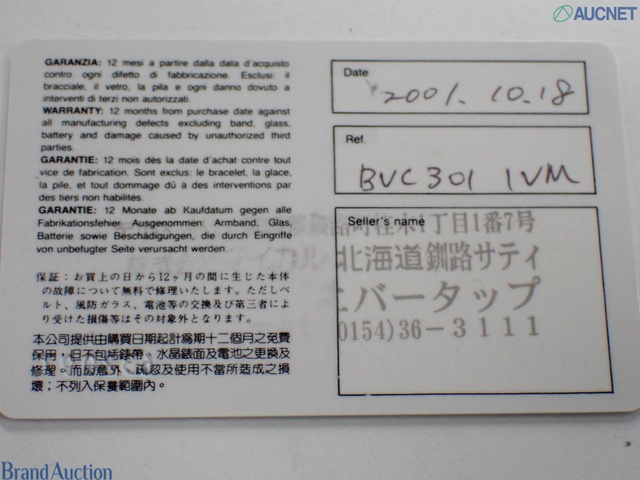 AUCNET
GARANZIA: 12 mesi a partire dalla data d'acquisto
contro ogni difetto di fabbricazione. Esclusi: il
bracciale, il vetro, la pila e ogni danno dovuto a
interventi di terzi non autorizzati.
WARRANTY: 12 months from purchase date against
all manufacturing defects excluding band, glass,
battery and damage caused by unauthorized third
parties.
GARANTIE: 12 mois dès la date d'achat contre tout
vice de fabrication. Sont exclus: le bracelet, la glace,
la pile, et tout dommage dû à des interventions par
des tiers non habilités.
GARANTIE: 12 Monate ab Kaufdatum gegen alle
Fabrikationsfehler Ausgenommen: Armband, Glas,
Batterie sowie Beschädigungen, die durch Eingriffe
von unbefugter Seite verursacht werden.
保証：お買上の日から12ヶ月の間に生じた本体
の故障について無料で修理いたします。ただしベ
ルト、風防ガラス、電池等の交換及び第三者によ
り受けた損傷等はその対象外となります。
本公司提供由購買日期起計為期十二個月之免費
保用，但不包括錶帶、水晶錶面及電池之更換及
修理。而因意外、疏忽及使用不當所造成之損
壞；不列入保養範圍內。
Date
2001.10.18
Ref.
BVC301 1VM
Seller's name
路町桂木1丁目1番7号
北海道釧路サティ
エバータップ
(0154)36-3111
Brand Auction